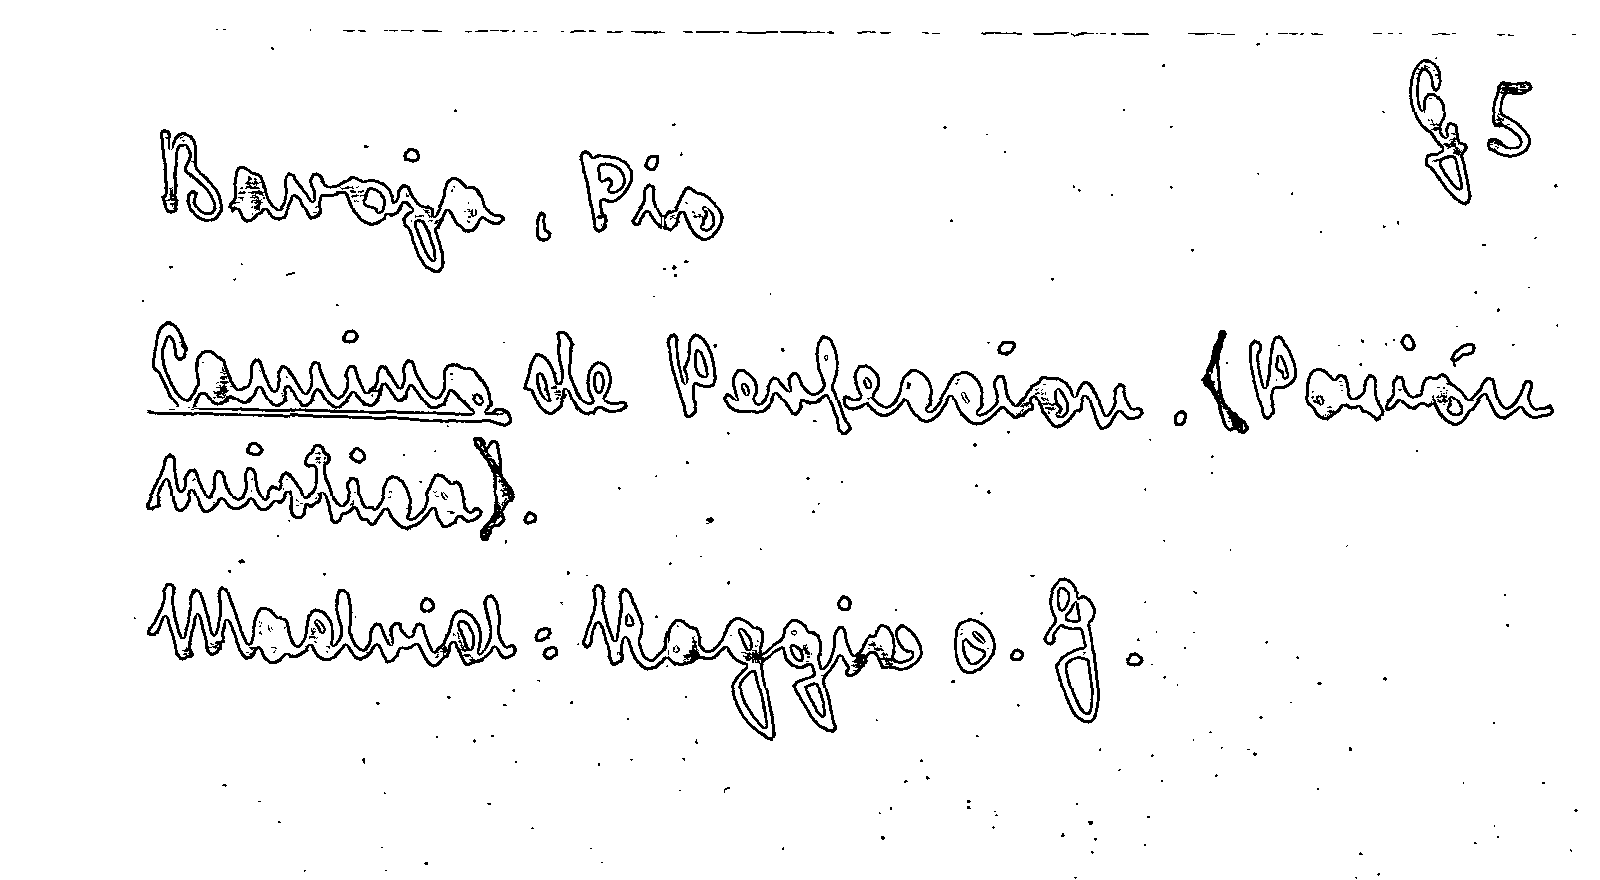 G 5
Baroja, Pio
Camino de Perfeccion. (Pasión
mistica).
Madrid: Raggio s. f.